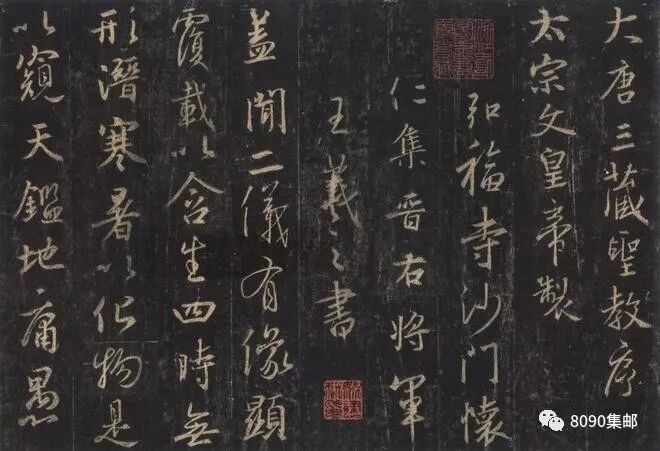 大唐三藏聖教序
太宗文皇帝製
弘福寺沙門懷
仁集晉右將軍
王羲之書
蓋聞二儀有像顯
覆載以含生四時無
形潛寒暑以化物是
以窺天鑑地庸愚
8090集邮